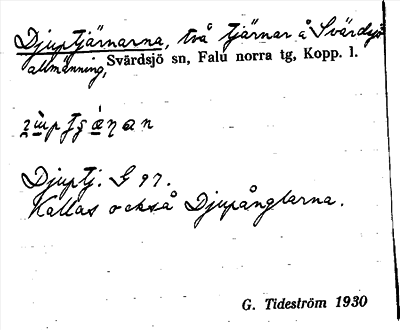 Djuptjärnarna, två tjärnar å Svärdsjö
allmänning, Svärdsjö sn, Falu norra tg, Kopp. l.
Djuptj. G 97.
Kallas också Djupånglarna.
G. Tideström 1930